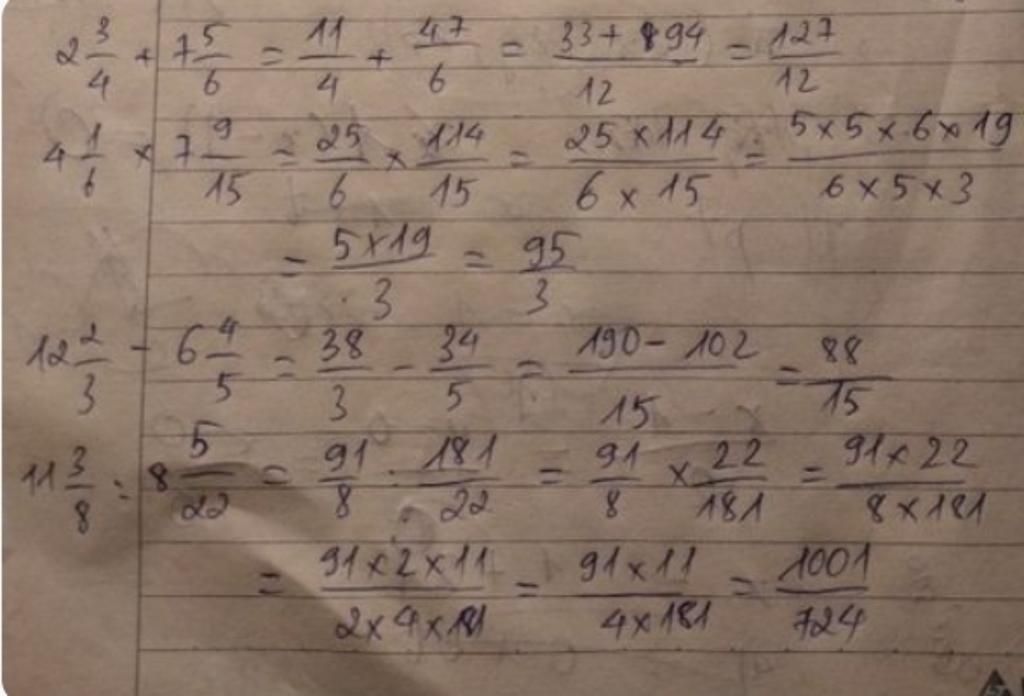 2 3/4 + 7 5/6 = 11/4 + 47/6 = (33 + 94)/12 = 127/12
4 1/6 × 7 9/15 = 25/6 × 114/15 = (25 × 114)/(6 × 15) = (5 × 5 × 6 × 19)/(6 × 5 × 3)
= (5 × 19)/3 = 95/3
12 2/3 - 6 4/5 = 38/3 - 34/5 = (190 - 102)/15 = 88/15
11 3/8 : 8 5/22 = 91/8 : 181/22 = 91/8 × 22/181 = (91 × 22)/(8 × 181)
= (91 × 2 × 11)/(2 × 4 × 181) = (91 × 11)/(4 × 181) = 1001/724